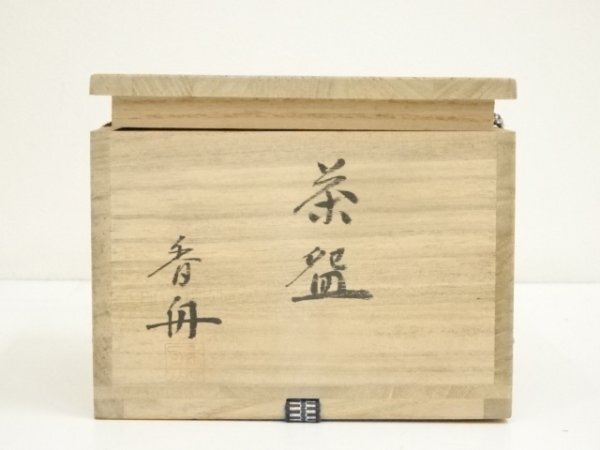 茶盌
香舟